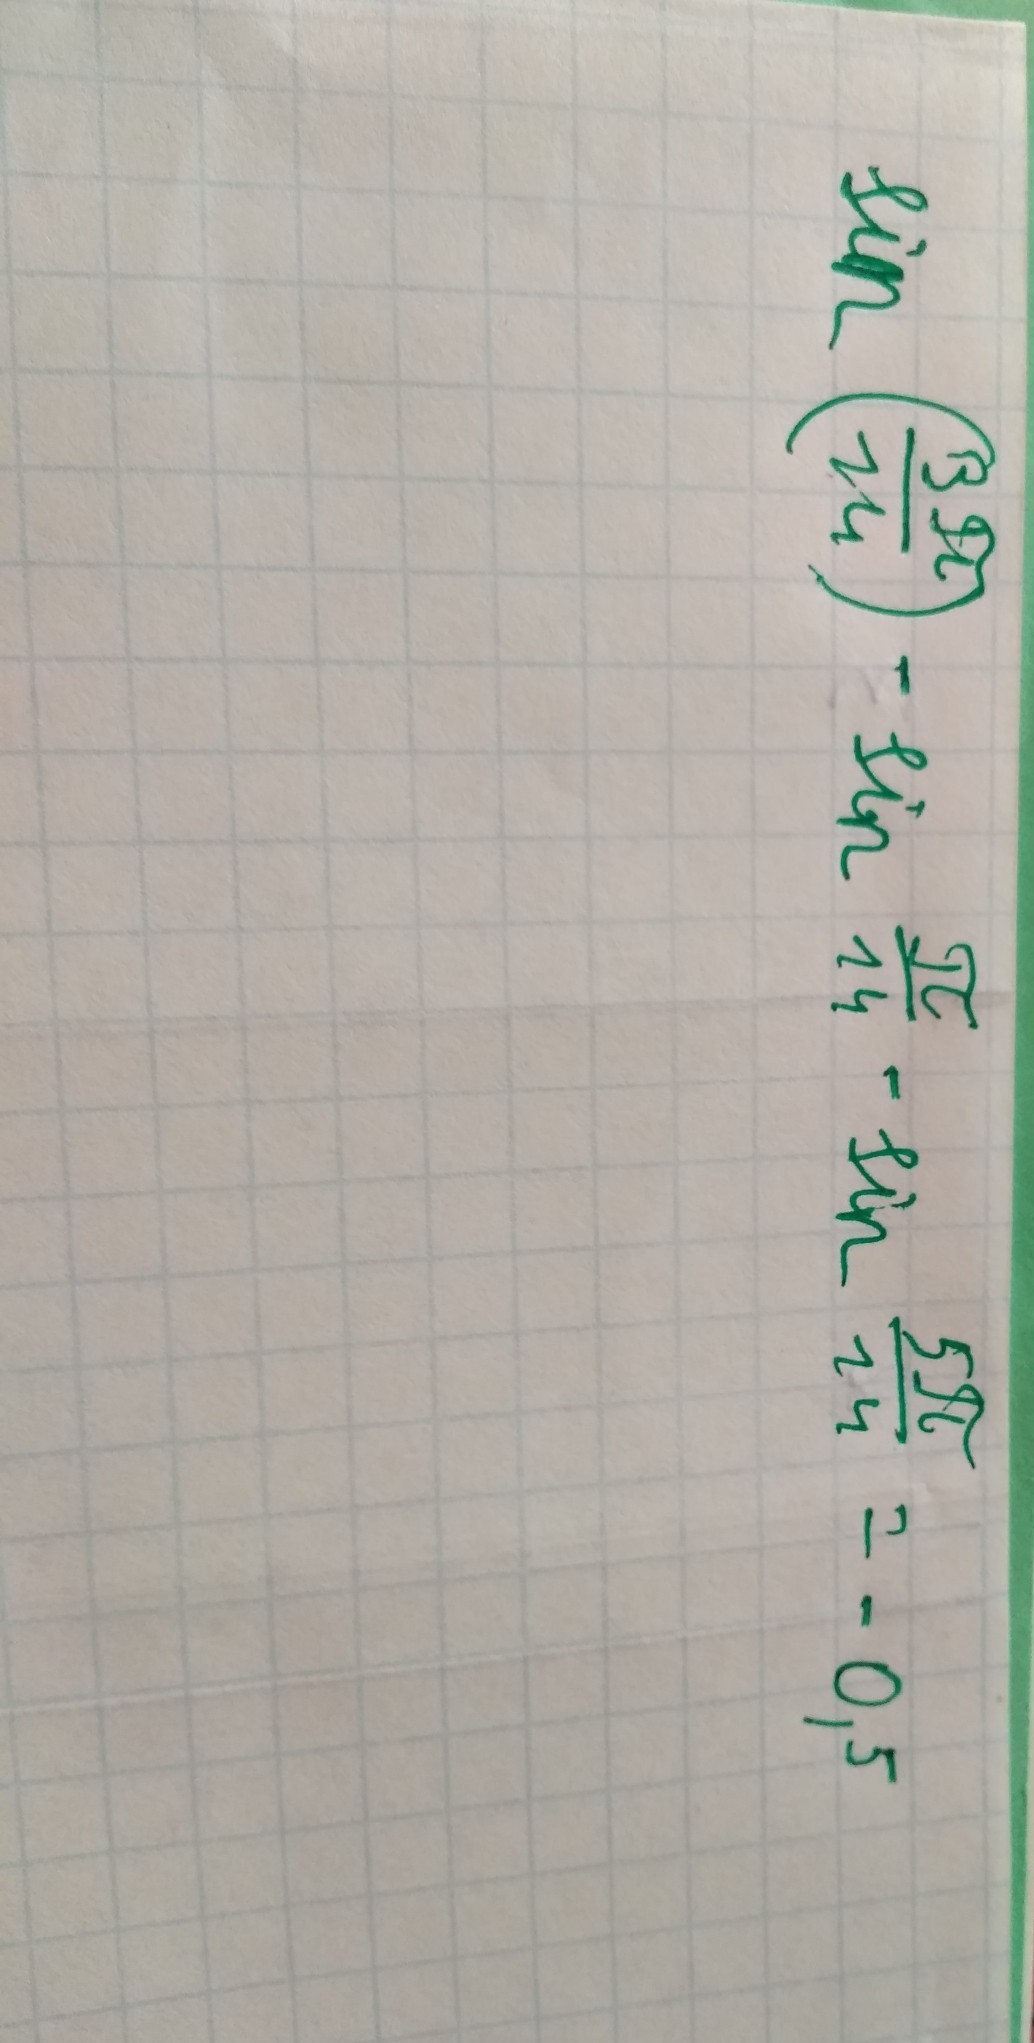 sin (3π/14) - sin π/14 - sin 5π/14 = - 0,5